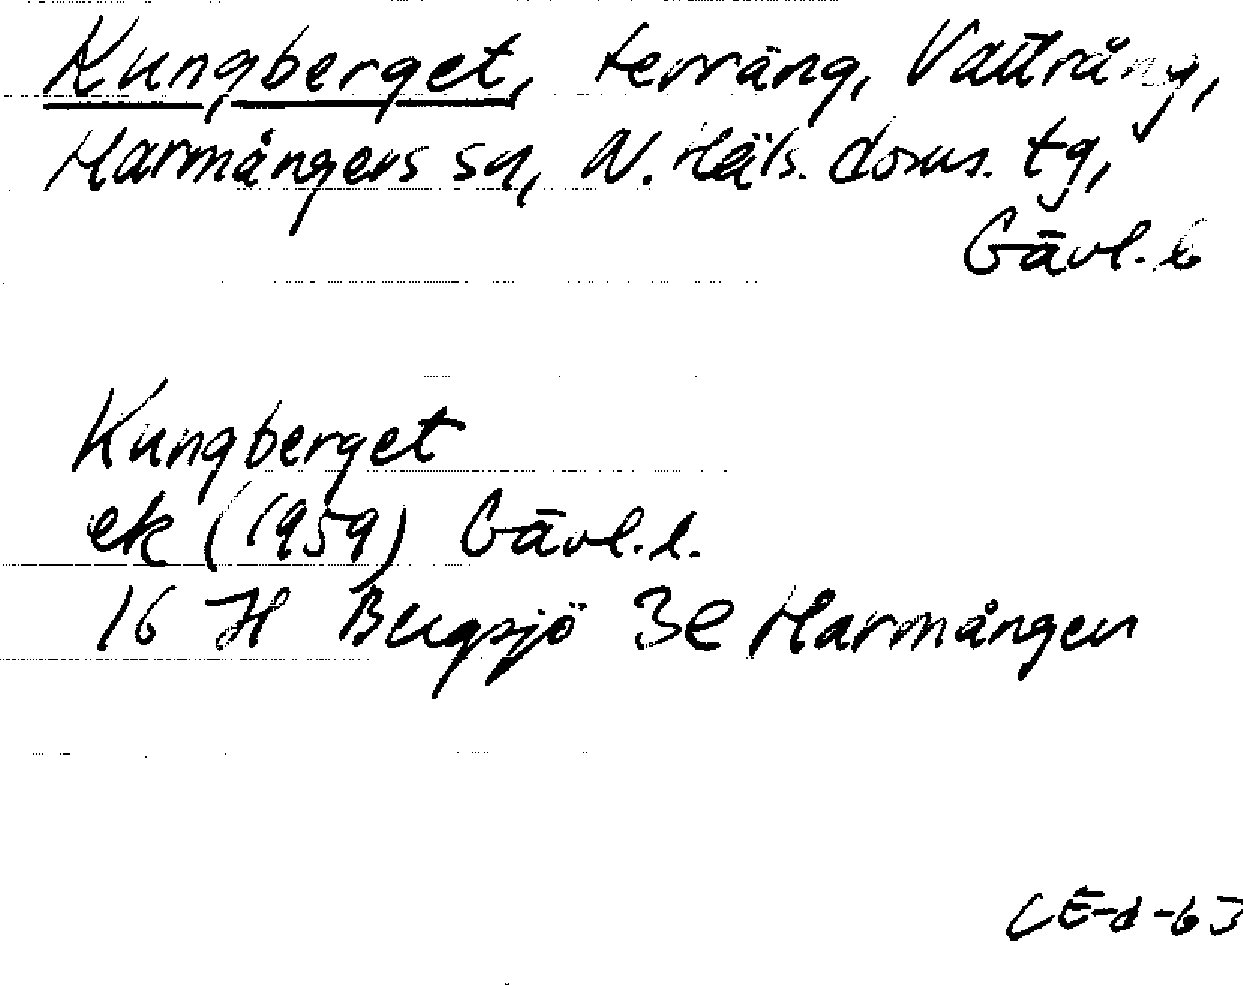 Kungberget, terräng, Vattrång,
Harmångers sn, N. Häls. doms. tg,
Gävl. l
Kungberget
ek (1959) Gävl. l.
16 H Bergsjö 3e Harmånger
CE-d-63